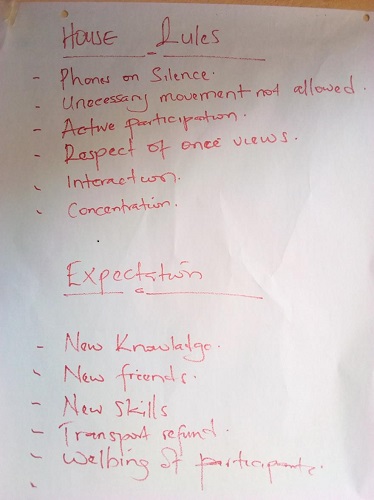 House Rules
- Phones on Silence.
- Unecessary movement not allowed.
- Active participation.
- Respect of once views.
- Interaction.
- Concentration.
Expectation
- New Knowladge.
- New friends.
- New skills
- Transport refund.
- Welbing of participants.
-